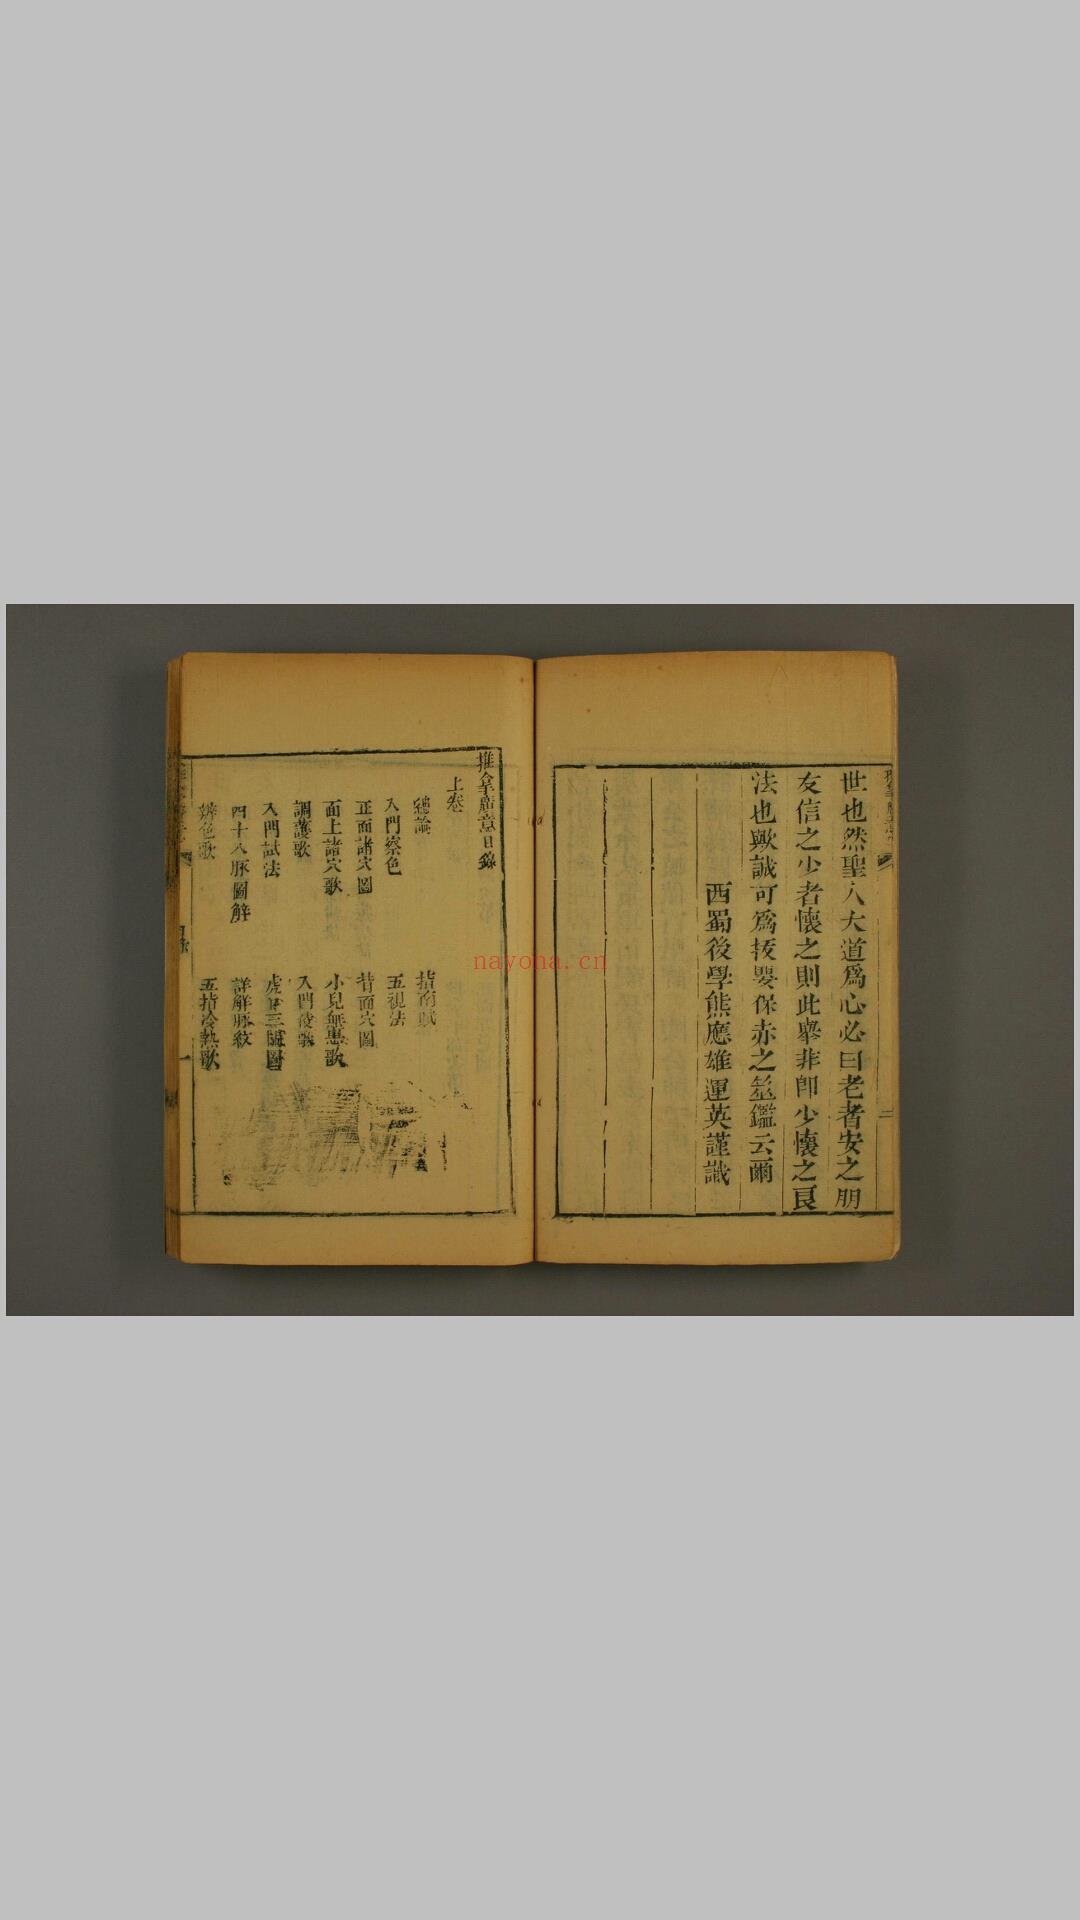 世也然聖人大道爲心必曰老者安之朋
友信之少者懷之則此舉非卽少懷之良
法也歟誠可爲拔嬰保赤之筮鑑云爾
西蜀後學熊應雄運英謹識
推拿廣意目錄
上卷
總論
指南賦
入門察色
五視法
正面諸穴圖
背面穴圖
面上諸穴歌
小兒無患歌
調護歌
入門候歌
入門試法
虎口三關圖
四十八脈圖解
詳解脈紋
辨色歌
五指冷熱歌
目錄
一
二
nayona.cn